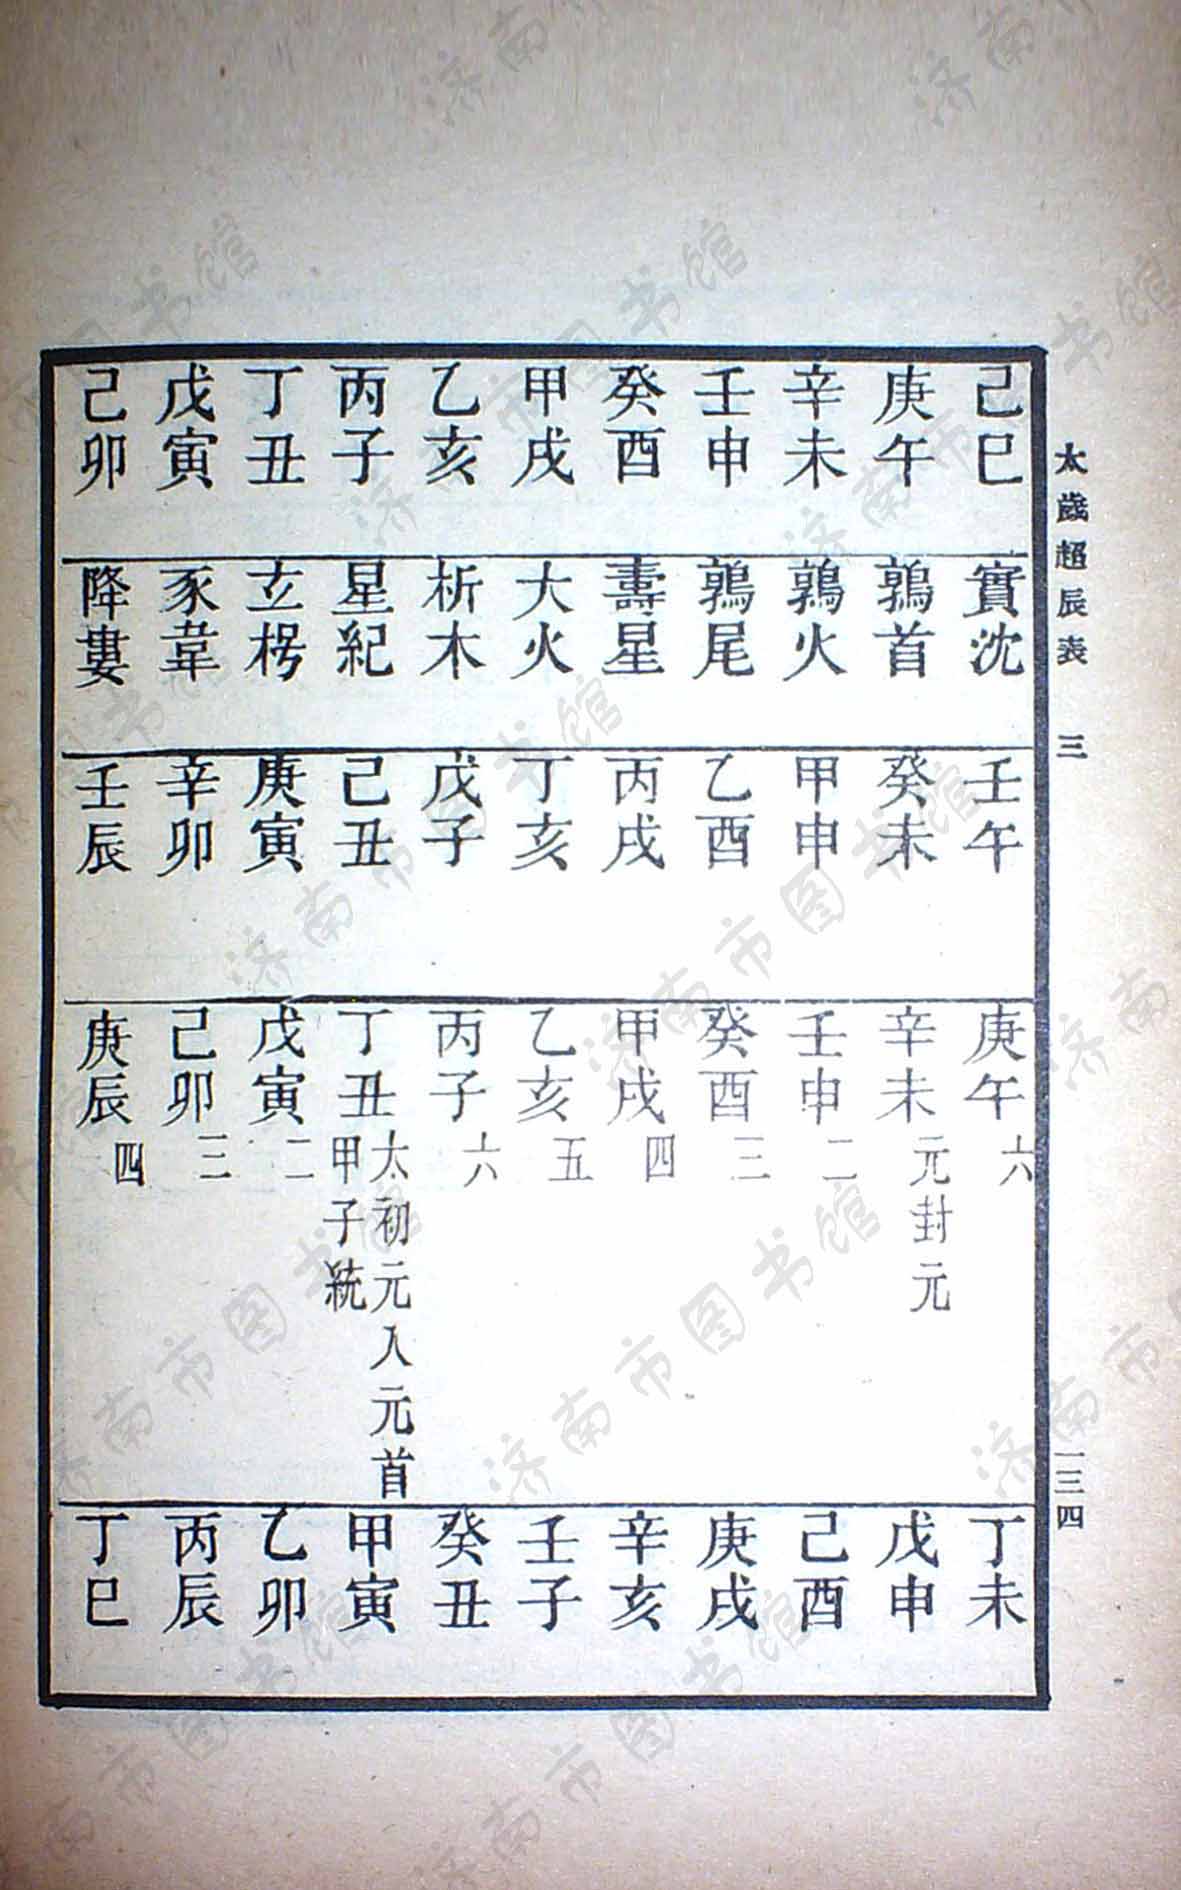 太歲超辰表 三 一三四
己巳 實沈 壬午 庚午 六 丁未
庚午 鶉首 癸未 辛未 元封元 戊申
辛未 鶉火 甲申 壬申 二 己酉
壬申 鶉尾 乙酉 癸酉 三 庚戌
癸酉 壽星 丙戌 甲戌 四 辛亥
甲戌 大火 丁亥 乙亥 五 壬子
乙亥 析木 戊子 丙子 六 癸丑
丙子 星紀 己丑 丁丑 太初元入元首甲子統 甲寅
丁丑 玄枵 庚寅 戊寅 二 乙卯
戊寅 豕韋 辛卯 己卯 三 丙辰
己卯 降婁 壬辰 庚辰 四 丁巳
济南市图书馆